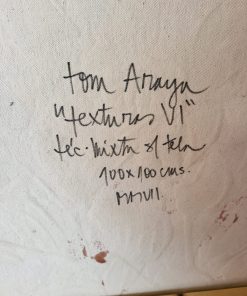 tom Araya
"texturas VI"
téc. mixta s/ tela
100x100 cms.